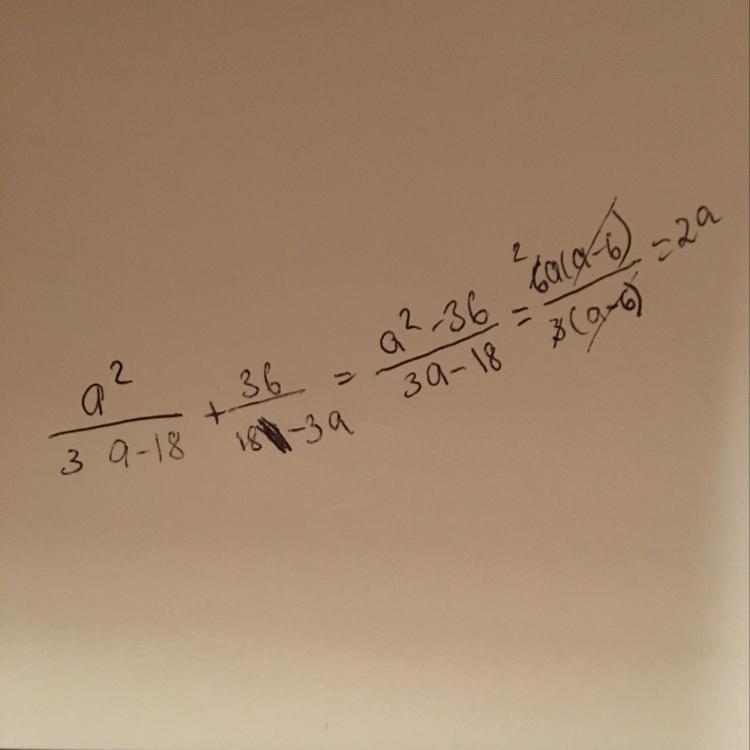 a²/(3 a-18) + 36/(18-3a) = (a²-36)/(3a-18) = 6a(a-6)/3(a-6) ² = 2a